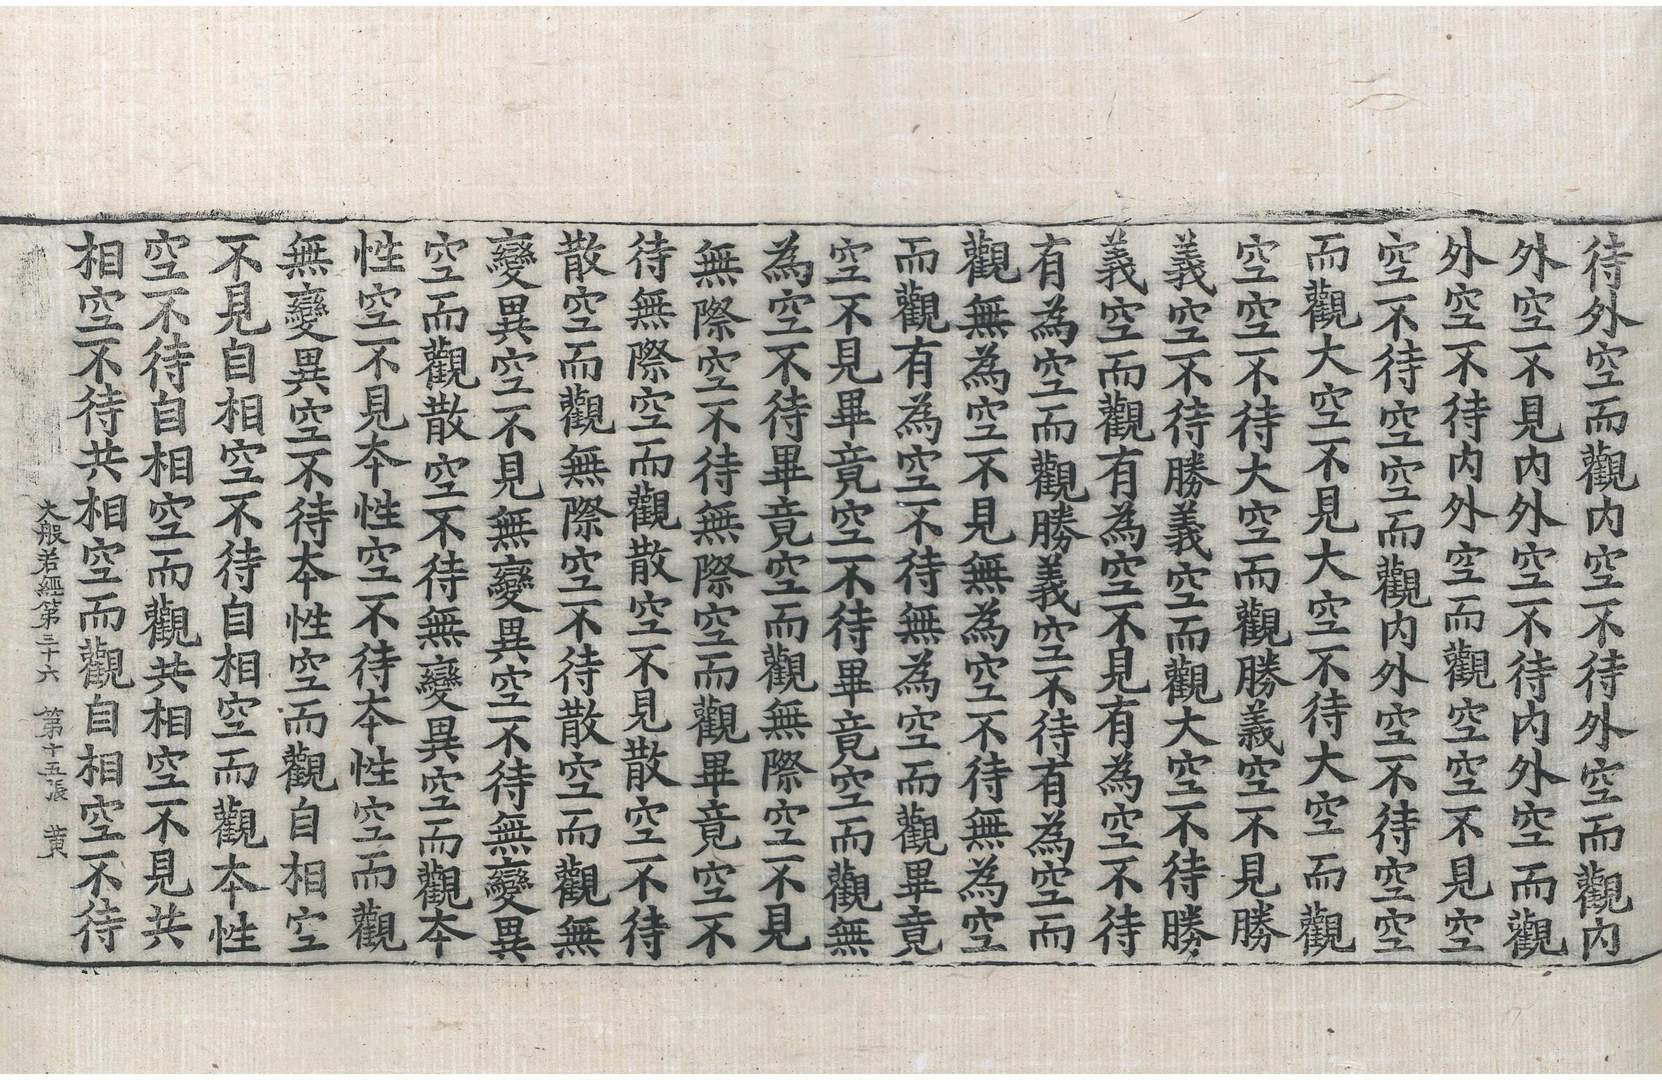 待外空而觀内空不待外空而觀内
外空不見内外空不待内外空而觀
外空不待内外空而觀空空不見空
空不待空空而觀内外空不待空空
而觀大空不見大空不待大空而觀
空空不待大空而觀勝義空不見勝
義空不待勝義空而觀大空不待勝
義空而觀有為空不見有為空不待
有為空而觀勝義空不待有為空而
觀無為空不見無為空不待無為空
而觀有為空不待無為空而觀畢竟
空不見畢竟空不待畢竟空而觀無
為空不待畢竟空而觀無際空不見
無際空不待無際空而觀畢竟空不
待無際空而觀散空不見散空不待
散空而觀無際空不待散空而觀無
變異空不見無變異空不待無變異
空而觀散空不待無變異空而觀本
性空不見本性空不待本性空而觀
無變異空不待本性空而觀自相空
不見自相空不待自相空而觀本性
空不待自相空而觀共相空不見共
相空不待共相空而觀自相空不待
大般若經第三十六 第十五張 黄